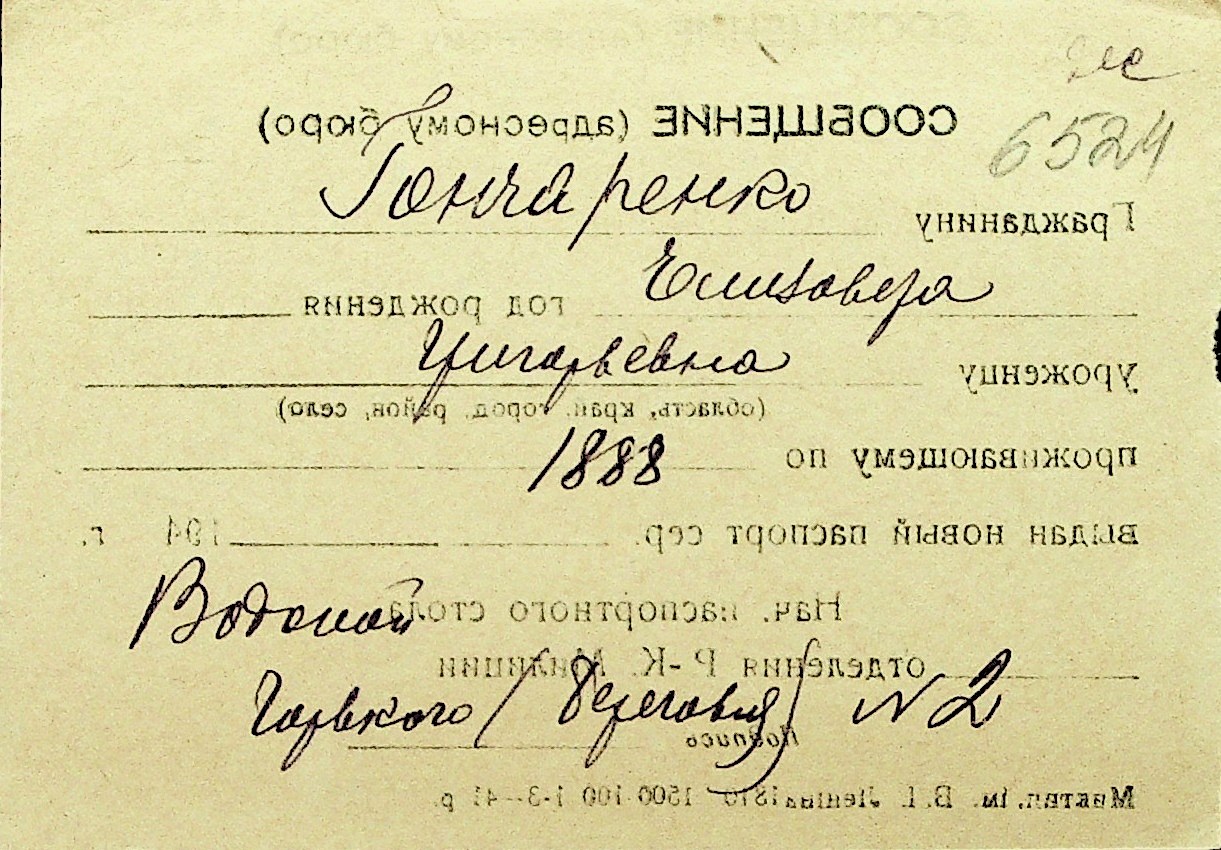 6524
СООБЩЕНИЕ (адресному бюро)
Гончаренко
Гражданину
Елизовета
год рождения
Григорьевна
уроженцу
(область, край, город, район, село)
1888
проживающему по
выдан новый паспорт сер. 194 г.
Водопой
Нач. паспортного стола
отделения Р-К. Милиции
Горького (Береговая) N 2
Подпись
ім. В. І. Леніна 1810 1500-100 1-3-41 р.